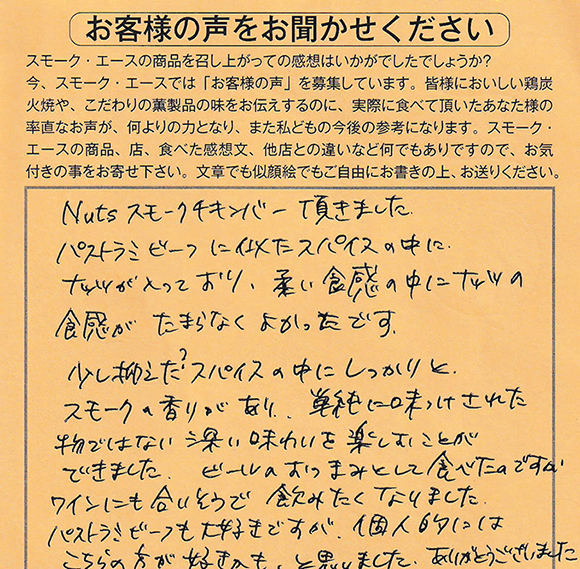 お客様の声をお聞かせください
スモーク・エースの商品を召し上がっての感想はいかがでしたでしょうか?
今、スモーク・エースでは「お客様の声」を募集しています。皆様においしい鶏炭
火焼や、こだわりの薫製品の味をお伝えするのに、実際に食べて頂いたあなた様の
率直なお声が、何よりの力となり、また私どもの今後の参考になります。スモーク・
エースの商品、店、食べた感想文、他店との違いなど何でもありですので、お気
付きの事をお寄せ下さい。文章でも似顔絵でもご自由にお書きの上、お送りください。
Nuts スモークチキンバー 頂きました.
パストラミビーフに似たスパイスの中に.
ナッツが入っており、柔い食感の中にナッツの
食感が たまらなく よかったです.
少し抑えた?スパイスの中に しっかりと.
スモークの香りがあり、単純に味つけされた
物ではない 深い味わいを楽しむことが
できました. ビールのおつまみとして食べたのですが
ワインにも合いそうで 飲みたくなりました.
パストラミビーフも大好きですが、個人的には
こちらの方が好きかも、と思いました. ありがとうございました